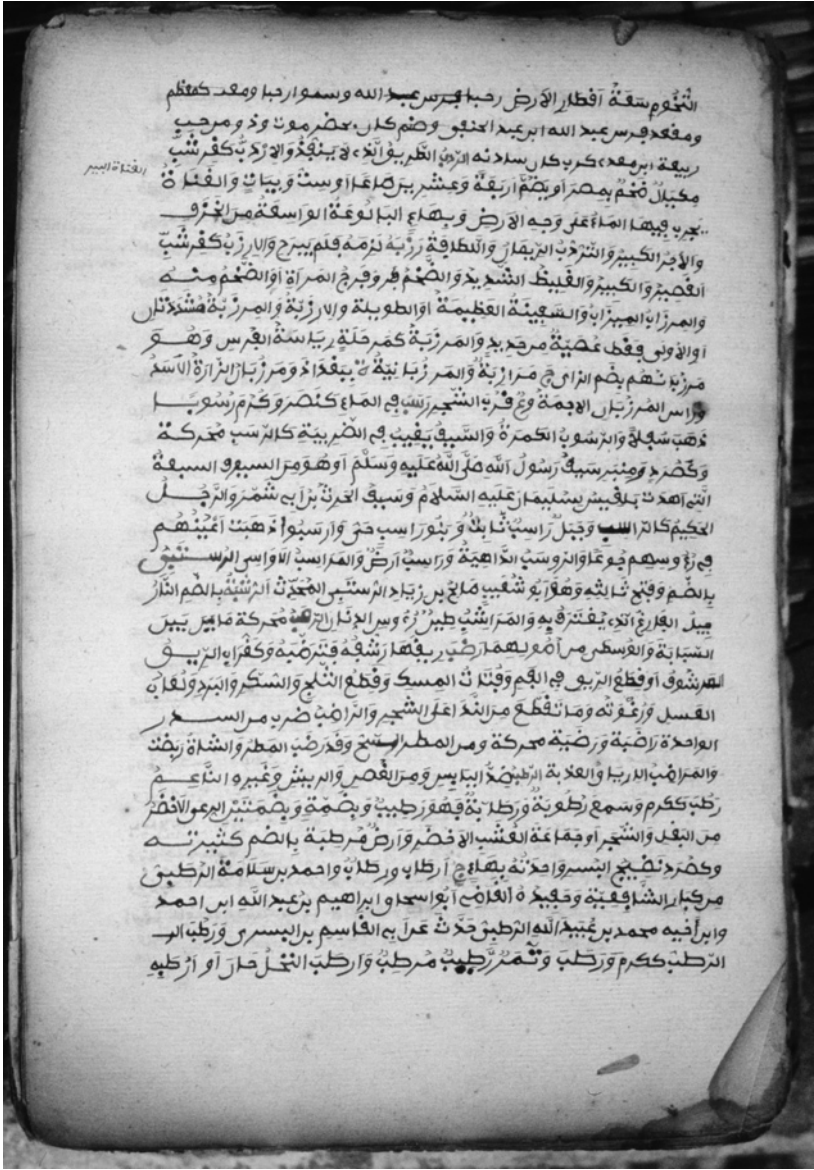 التخوم سَعَةُ أقطار الأرض رحبا فرس عبد الله وسموا رحبا ومعد كمعظم
ومقعد فرس عبد الله ابن عبد الحنفي وضم كان بحضر موت وذو مرحب
ربيعة ابن معد كرب كان سادنه الرَّدْبُ الطريق الذي لا يَنفُذُ والإرْدَبُّ كقِرْشَبّ
مكيال ضخم بمصر أو يضُمُّ أربعة وعشرين صاعا أو ست ويبات والقناة
يجري فيها الماء على وجه الأرض وبهاء البالوعة الواسعة من الخزف
القناة البير
والآجر الكبير والتردب الرئمان واللطافة رزبه لزمه فلم يبرح والإرْزَبُّ كقرشب
القصير والكبير والغليظ الشديد والضخم وفرج المرأة أو الضخم منه
والمرزاب الميزاب والسفينة العظيمة أو الطويلة والإرزبّة والمرزبّة مشددتان
أو الأولى فقط عُصَيّة من حديد والمرزبة كمرحلة رياسة الفرس وهو
مرزبانهم بضم الزاي ج مرازبة والمرزبانية ة ببغداد ومرزبان الزارة الأسد
وراس المرزبان الاجمة وع قرب الشحر رسب في الماء كنصر وكرم رسوبا
ذهب سفلا والرسوب الكمرة والسيف يغيب في الضريبة كالرسب محركة
وكصرد ومنبر سيف رسول الله صلى الله عليه وسلم أو هو من السيوف السبعة
التي أهدت بلقيس لسليمان عليه السلام وسيف الحرث بن أبي شمر والرجل
الحكيم كالراسب وجبل راسب ثابت وبنو راسب حي وارسبوا ذهبت أعينهم
في رءوسهم جوعا والروسب الداهية وراسب أرض والمراسب الأواسي الرستبي
بالضم وفتح ثالثه وهو أبو شعيب صالح بن زياد الرستبي المحدث الرشبة بالضم النار
جيل الفارغ الذي يغترف به والمراشب طين رءوس الدنان الرتب محركة ما بين
السبابة والوسطى من أصولهما رضب ريقها رشفه كترضبه وكغراب الريق
المرشوف أو قطع الريق في الفم وفتات المسك وقطع الثلج والسكر والبرد ولعاب
العسل ورغوته وما تقطع من الندا على الشجر والراضب ضرب من السدر
الواحدة راضبة ورضبة محركة ومن المطر السح وقد رضب المطر والشاة ربضت
والمراضب الارياق العذبة الرطب ضد اليابس ومن الغصن والريش وغيره الناعم
رطب ككرم وسمع رطوبة ورطابة فهو رطيب وبضمة وبضمتين الرعي الأخضر
من البقل والشجر أو جماعة العشب الأخضر وأرض مرطبة بالضم كثيرته
وكصرد نضيج البسر واحدته بهاء ج أرطاب ورطاب واحمد بن سلامة الرطبي
من كبار الشافعية وحفيده القاضي أبو اسحاق ابراهيم بن عبد الله ابن احمد
وابن أخيه محمد بن عبيد الله الرطبي حدث عن أبي القاسم بن البسري ورطب الر
الرطب ككرم ورطب وتمر رطيب مرطب وأرطب النخل حان أو أرطبه